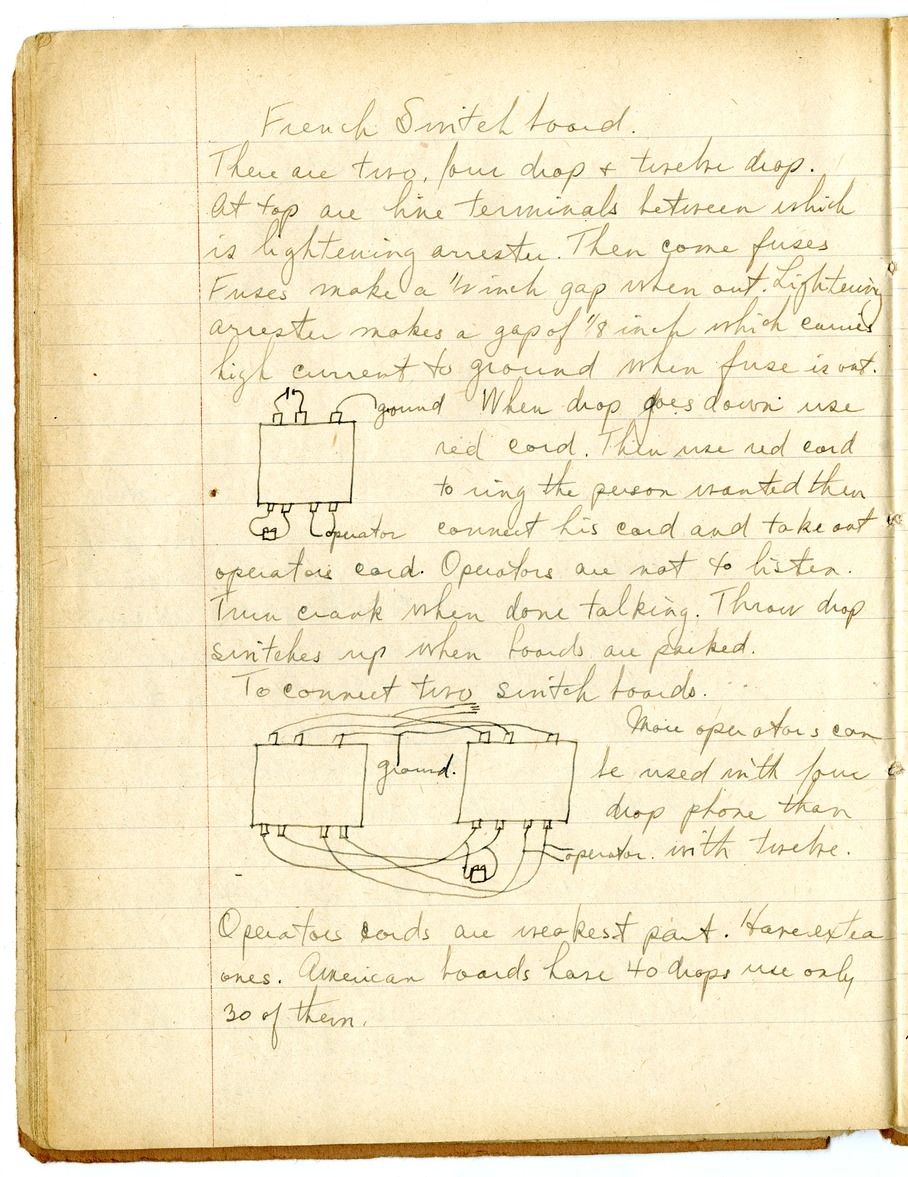 French Switch board.
There are two, four drop & twelve drop.
At top are line terminals between which
is lightening arrester. Then come fuses
Fuses make a inch gap when out. Lightening
arrester makes a gap of 1/8 inch which carries
high current to ground when fuse is out.
ground When drop goes down use
red cord. Then use red cord
to ring the person wanted then
operator connect his cord and take out
operators cord. Operators are not to listen.
Turn crank when done talking. Throw drop
switches up when boards are packed.
To connect two switch boards.
More operators can
ground. be used with four
drop phone than
operator. with twelve.
Operators cords are weakest part. Have extra
ones. American boards have 40 drops use only
30 of them.